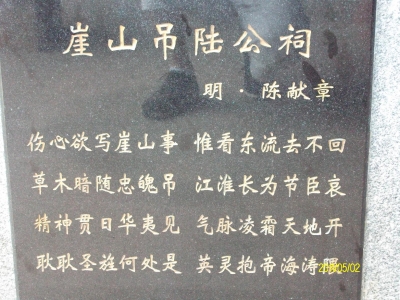 崖山吊陆公祠
明·陈献章
伤心欲写崖山事 惟看东流去不回
草木暗随忠魄吊 江淮长为节臣哀
精神贯日华夷见 气脉凌霜天地开
耿耿圣旌何处是 英灵抱帝海涛隈
05/02